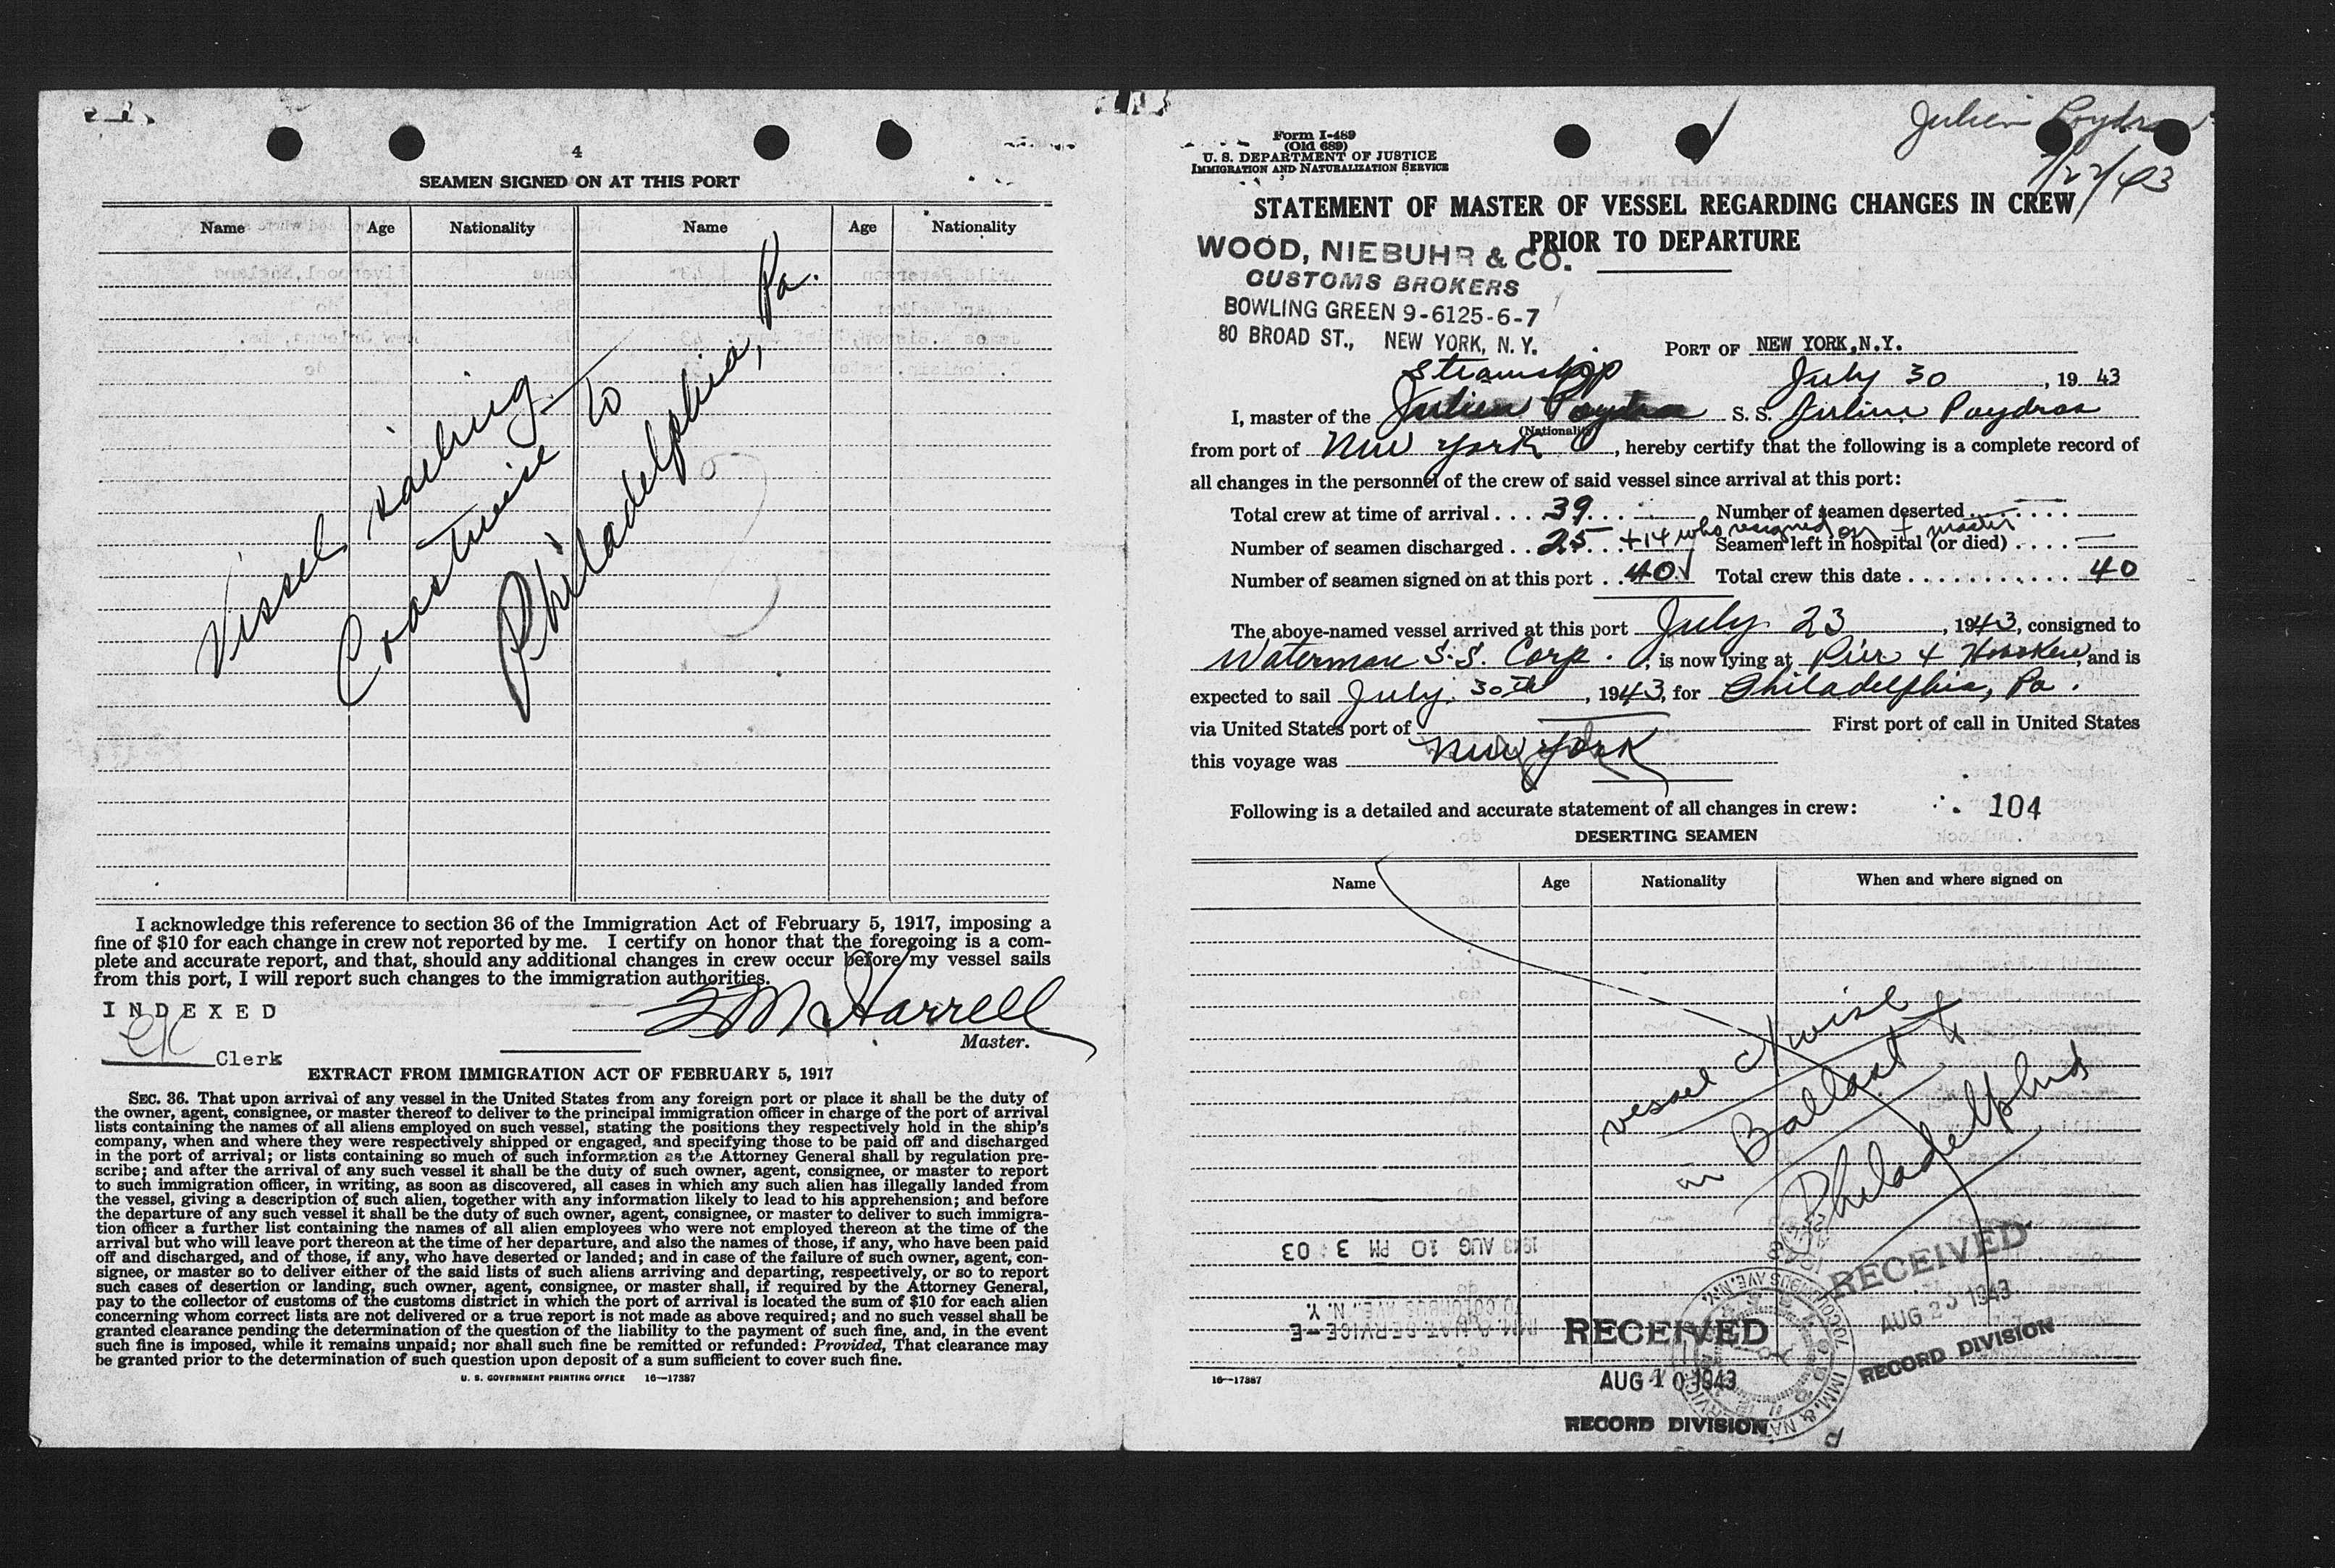 4
SEAMEN SIGNED ON AT THIS PORT
Name Age Nationality Name Age Nationality
Vessel sailing
Coastwise to
Philadelphia, Pa.
I acknowledge this reference to section 36 of the Immigration Act of February 5, 1917, imposing a
fine of $10 for each change in crew not reported by me. I certify on honor that the foregoing is a com-
plete and accurate report, and that, should any additional changes in crew occur before my vessel sails
from this port, I will report such changes to the immigration authorities.
INDEXED
Harrell
Master.
Clerk
EXTRACT FROM IMMIGRATION ACT OF FEBRUARY 5, 1917
SEC. 36. That upon arrival of any vessel in the United States from any foreign port or place it shall be the duty of
the owner, agent, consignee, or master thereof to deliver to the principal immigration officer in charge of the port of arrival
lists containing the names of all aliens employed on such vessel, stating the positions they respectively hold in the ship's
company, when and where they were respectively shipped or engaged, and specifying those to be paid off and discharged
in the port of arrival; or lists containing so much of such information as the Attorney General shall by regulation pre-
scribe; and after the arrival of any such vessel it shall be the duty of such owner, agent, consignee, or master to report
to such immigration officer, in writing, as soon as discovered, all cases in which any such alien has illegally landed from
the vessel, giving a description of such alien, together with any information likely to lead to his apprehension; and before
the departure of any such vessel it shall be the duty of such owner, agent, consignee, or master to deliver to such immigra-
tion officer a further list containing the names of all alien employees who were not employed thereon at the time of the
arrival but who will leave port thereon at the time of her departure, and also the names of those, if any, who have been paid
off and discharged, and of those, if any, who have deserted or landed; and in case of the failure of such owner, agent, con-
signee, or master so to deliver either of the said lists of such aliens arriving and departing, respectively, or so to report
such cases of desertion or landing, such owner, agent, consignee, or master shall, if required by the Attorney General,
pay to the collector of customs of the customs district in which the port of arrival is located the sum of $10 for each alien
concerning whom correct lists are not delivered or a true report is not made as above required; and no such vessel shall be
granted clearance pending the determination of the question of the liability to the payment of such fine, and, in the event
such fine is imposed, while it remains unpaid; nor shall such fine be remitted or refunded: Provided, That clearance may
be granted prior to the determination of such question upon deposit of a sum sufficient to cover such fine.
U. S. GOVERNMENT PRINTING OFFICE 16—17387
Form I-489
(Old 689)
U. S. DEPARTMENT OF JUSTICE
IMMIGRATION AND NATURALIZATION SERVICE
Julien Poydras
7/22/43
STATEMENT OF MASTER OF VESSEL REGARDING CHANGES IN CREW
PRIOR TO DEPARTURE
WOOD, NIEBUHR & CO.
CUSTOMS BROKERS
BOWLING GREEN 9-6125-6-7
80 BROAD ST., NEW YORK, N. Y.
PORT OF NEW YORK, N.Y.
Steamship
July 30, 19 43
I, master of the Julien Poydras S. S. Julien Poydras
(Nationality)
from port of New York, hereby certify that the following is a complete record of
all changes in the personnel of the crew of said vessel since arrival at this port:
Total crew at time of arrival . . . 39 Number of seamen deserted
Number of seamen discharged . . 25 +14 who resigned on + master Seamen left in hospital (or died) . . . . —
Number of seamen signed on at this port . . 40 Total crew this date . . . . . . . . . . . . 40
The above-named vessel arrived at this port July 23, 1943, consigned to
Waterman S.S. Corp., is now lying at Pier 4 Hoboken, and is
expected to sail July 30th, 1943, for Philadelphia, Pa.
via United States port of — First port of call in United States
this voyage was New York
Following is a detailed and accurate statement of all changes in crew: 104
DESERTING SEAMEN
Name Age Nationality When and where signed on
vessel c/wise
in Ballast to
Philadelphia
1943 AUG 10 PM 3 03
IMM. & NAT. SERVICE-E
70 COLUMBUS AVE., N. Y.
RECEIVED
AUG 10 1943
RECORD DIVISION
RECEIVED
AUG 23 1943
RECORD DIVISION
16—17387